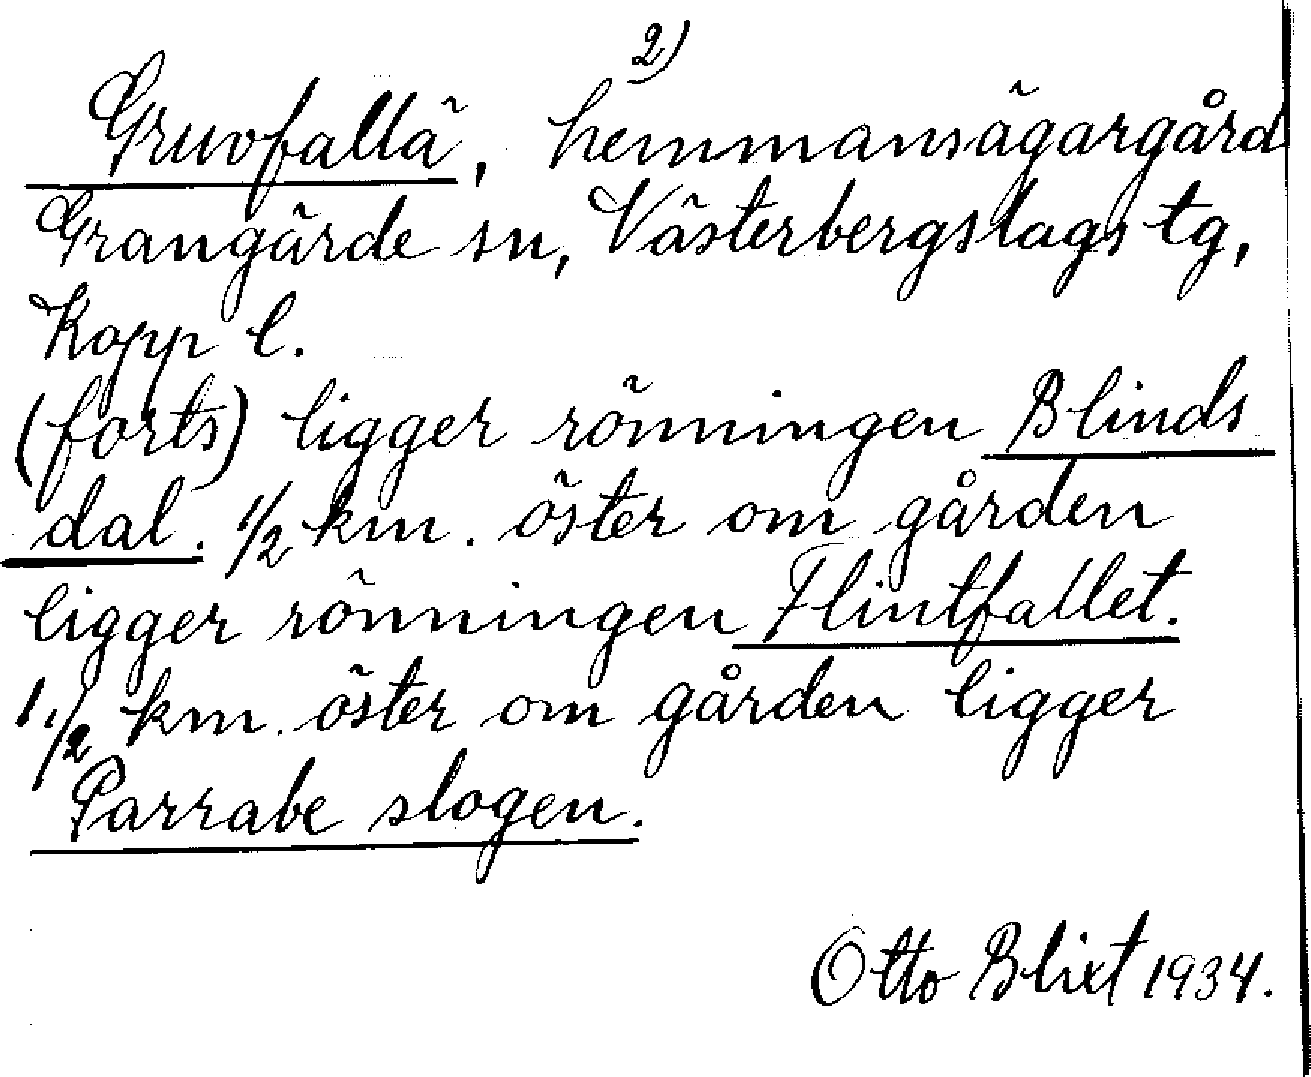 2)
Gruvfallä, hemmansägargård
Grangärde sn, Västerbergslags tg,
Kopp l.
(forts) ligger rönningen Blinds
dal. 1/2 km. öster om gården
ligger rönningen Flintfallet.
1 1/2 km. öster om gården ligger
Parrabe slogen.
Otto Blixt 1934.